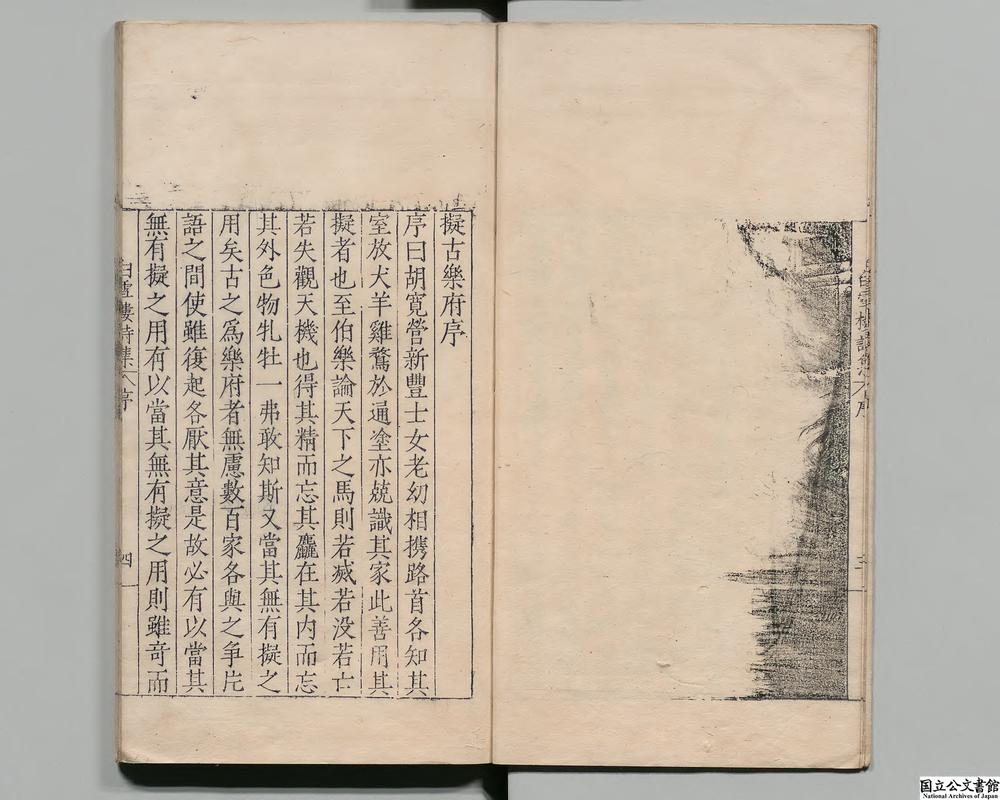 擬古樂府序
序曰胡寬營新豐士女老幼相携路首各知其
室放犬羊雞鶩於通塗亦競識其家此善用其
擬者也至伯樂論天下之馬則若滅若没若亡
若失觀天機也得其精而忘其麤在其内而忘
其外色物牝牡一弗敢知斯又當其無有擬之
用矣古之為樂府者無慮數百家各與之爭片
語之間使雖復起各厭其意是故必有以當其
無有擬之用有以當其無有擬之用則雖竒而
白雪樓詩集 序
四
三
国立公文書館
National Archives of Japan